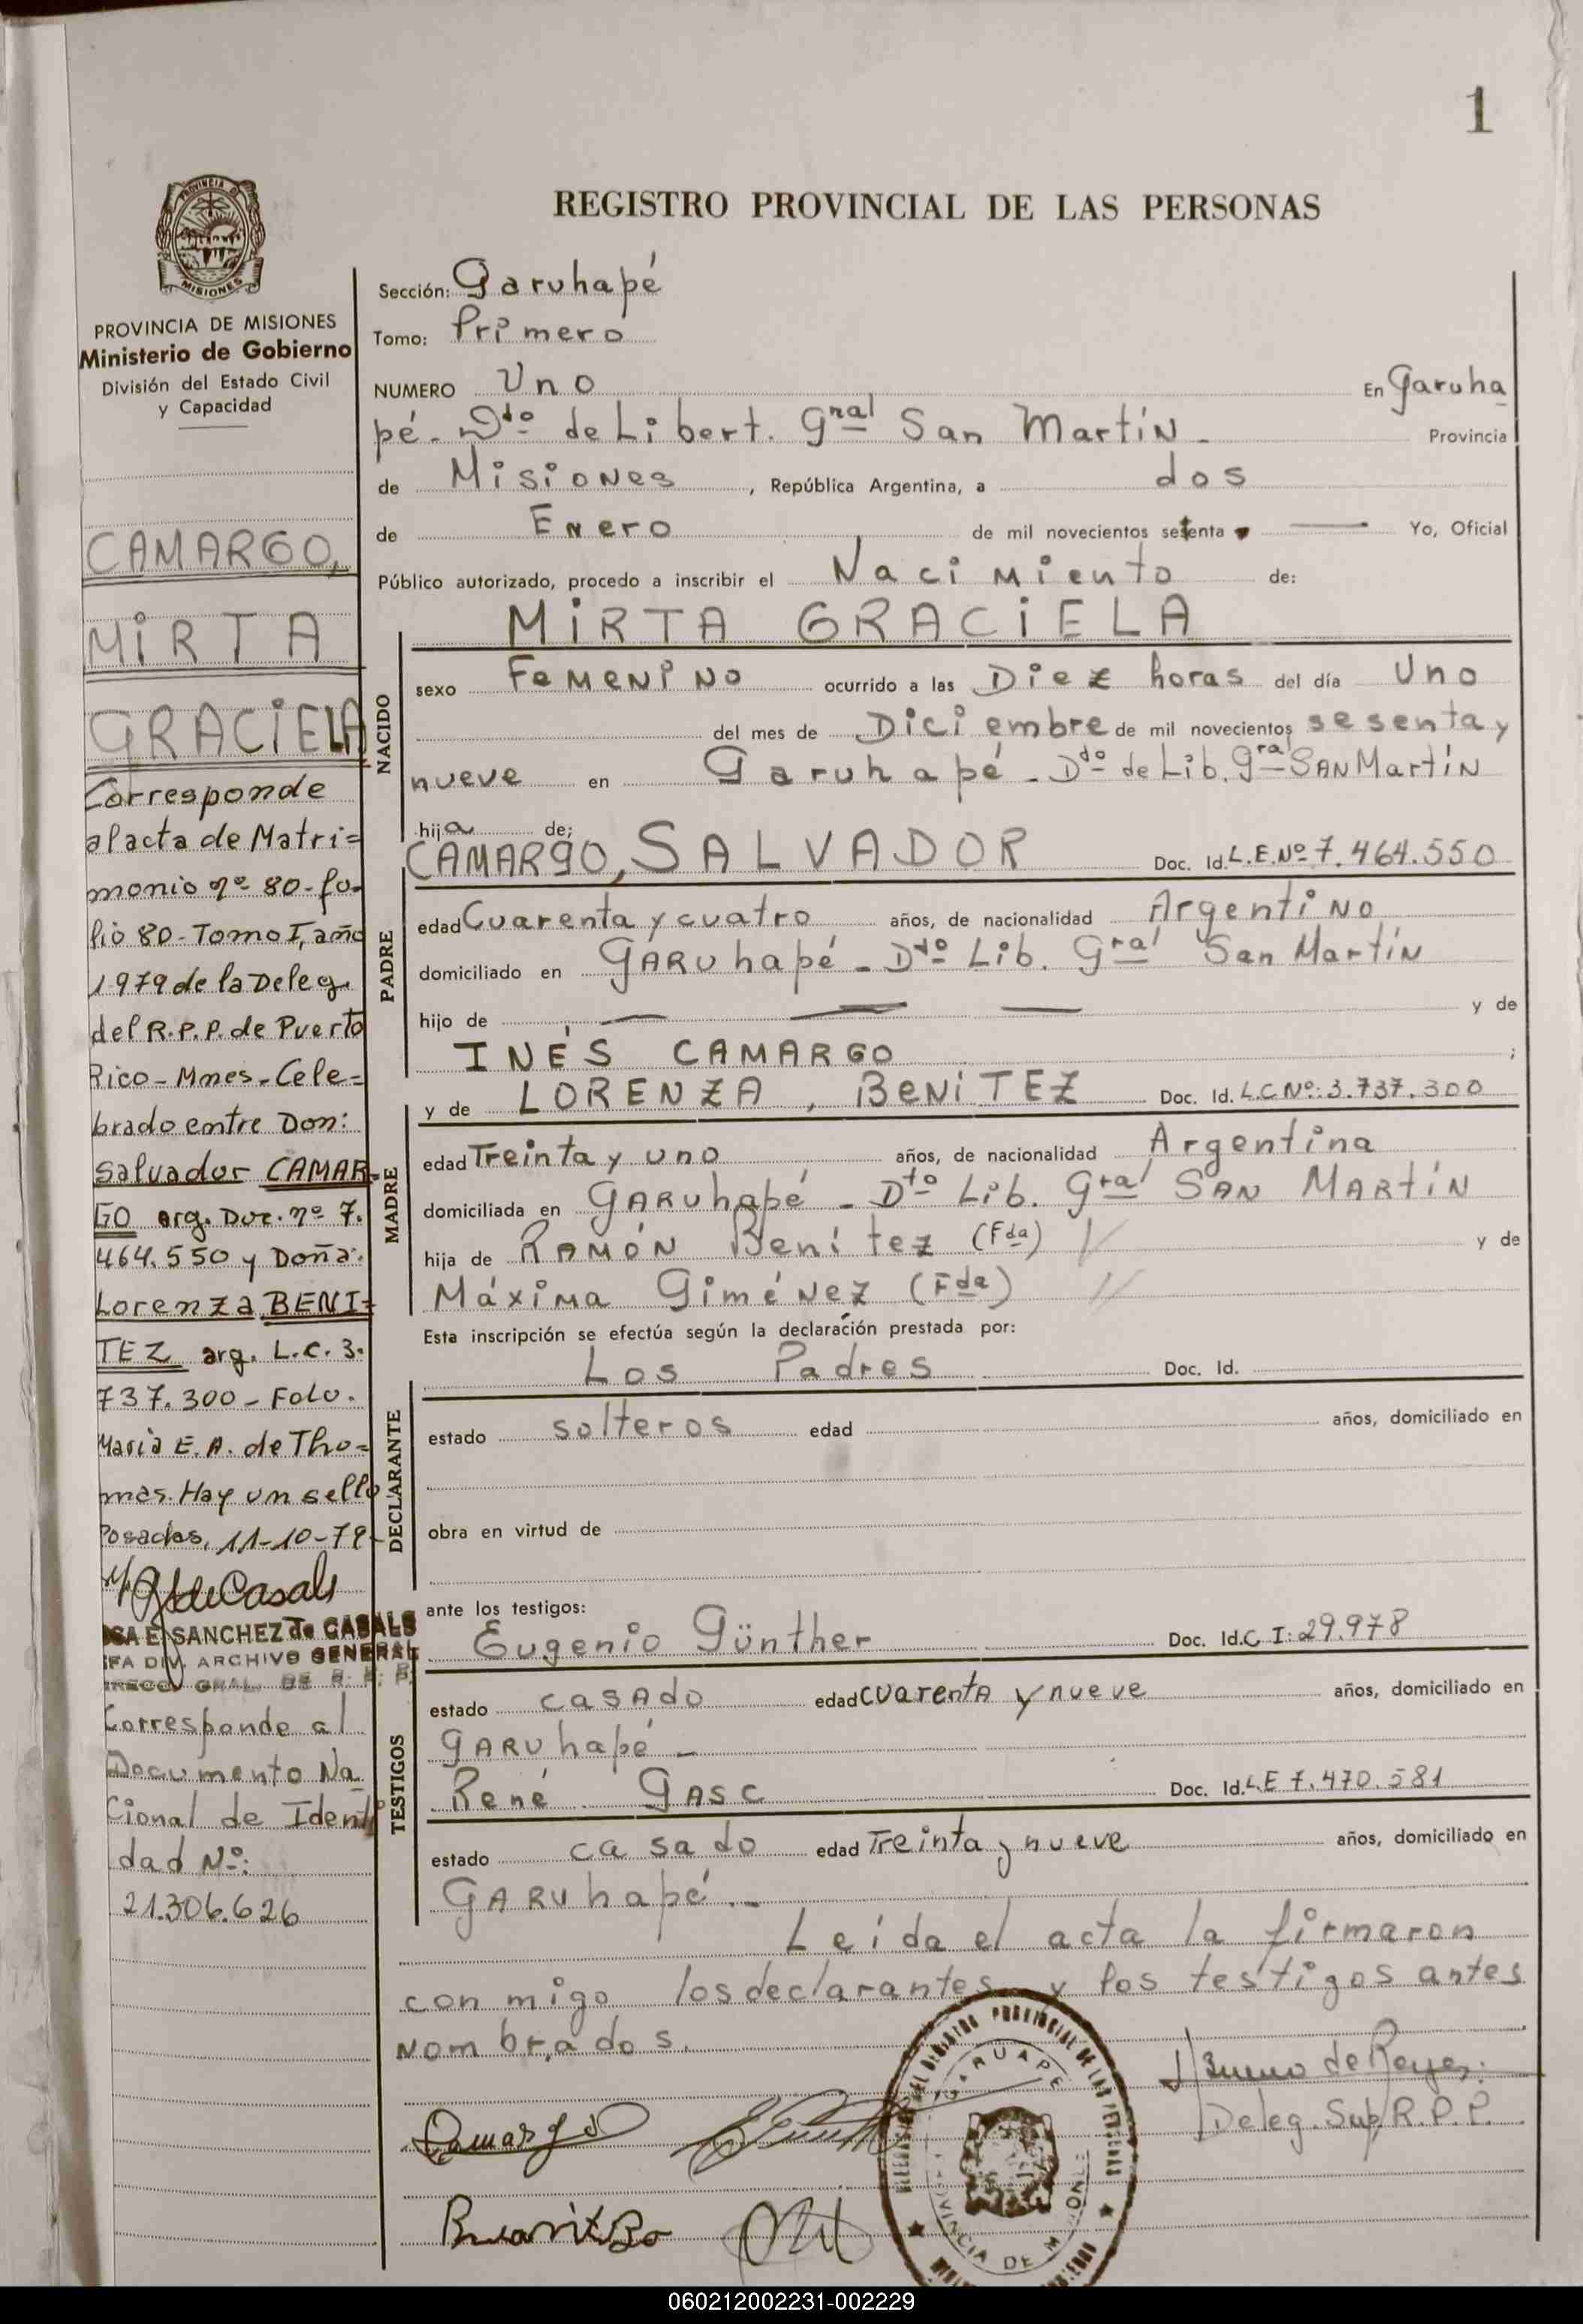 1
REGISTRO PROVINCIAL DE LAS PERSONAS
PROVINCIA DE
MISIONES
PROVINCIA DE MISIONES
Ministerio de Gobierno
División del Estado Civil
y Capacidad
CAMARGO,
MiRTA
GRACiELA
Corresponde
al acta de Matri=
monio nº 80-fo-
lio 80-Tomo I, año
1979 de la Deleg.
del R.P.P. de Puerto
Rico-Mnes.-Cele=
brado entre Don:
Salvador CAMAR-
GO arg. Doc. nº 7.
464.550 y Doña:
Lorenza BENI=
TEZ arg. L.C. 3.
737.300-Fdo.
Maria E. A. de Tho=
mas. Hay un sello
Posadas, 11-10-79-
SANCHEZ de CASALS
DIV. ARCHIVO GENERAL
GRAL. DE R. P. P.
Corresponde al
Documento Na
cional de Identi
dad Nº:
21.306.626
Sección: Garuhapé
Tomo: Primero
NUMERO Uno En Garuha
pé - Dto de Libert. Gral San Martín - Provincia
de Misiones, República Argentina, a dos
de Enero de mil novecientos setenta — Yo, Oficial
Público autorizado, procedo a inscribir el Nacimiento de:
NACIDO
MiRTA GRACiELA
sexo Femenino ocurrido a las Diez horas del día Uno
del mes de Diciembre de mil novecientos sesenta y
nueve en Garuhapé - Ddo de Lib. Gral San Martín
hija de;
PADRE
CAMARGO, SALVADOR Doc. Id. L.E. Nº 7.464.550
edad Cuarenta y cuatro años, de nacionalidad Argentino
domiciliado en Garuhapé - Dto Lib. Gral San Martín
hijo de — — — y de
INÉS CAMARGO ;
MADRE
y de LORENZA, BENiTEZ Doc. Id. L.C Nº: 3.737.300
edad Treinta y uno años, de nacionalidad Argentina
domiciliada en Garuhapé - Dto Lib. Gral San Martín
hija de Ramón Benítez (Fda) y de
Máxima Giménez (Fda)
Esta inscripción se efectúa según la declaración prestada por:
DECLARANTE
Los Padres Doc. Id.
estado solteros edad años, domiciliado en
obra en virtud de
ante los testigos:
TESTIGOS
Eugenio Günther Doc. Id. C I: 29.978
estado casado edad cuarenta y nueve años, domiciliado en
Garuhapé -
René Gasc Doc. Id. L.E 7.470.581
estado casado edad Treinta y nueve años, domiciliado en
Garuhapé. -
Leída el acta la firmaron
conmigo los declarantes y los testigos antes
nombrados.
Bueno de Reyes.
Deleg. Sup R.P.P.
Camargo
DEL REGISTRO PROVINCIAL DE LAS PERSONAS
GARUAPE
PROVINCIA DE MISIONES
060212002231-002229